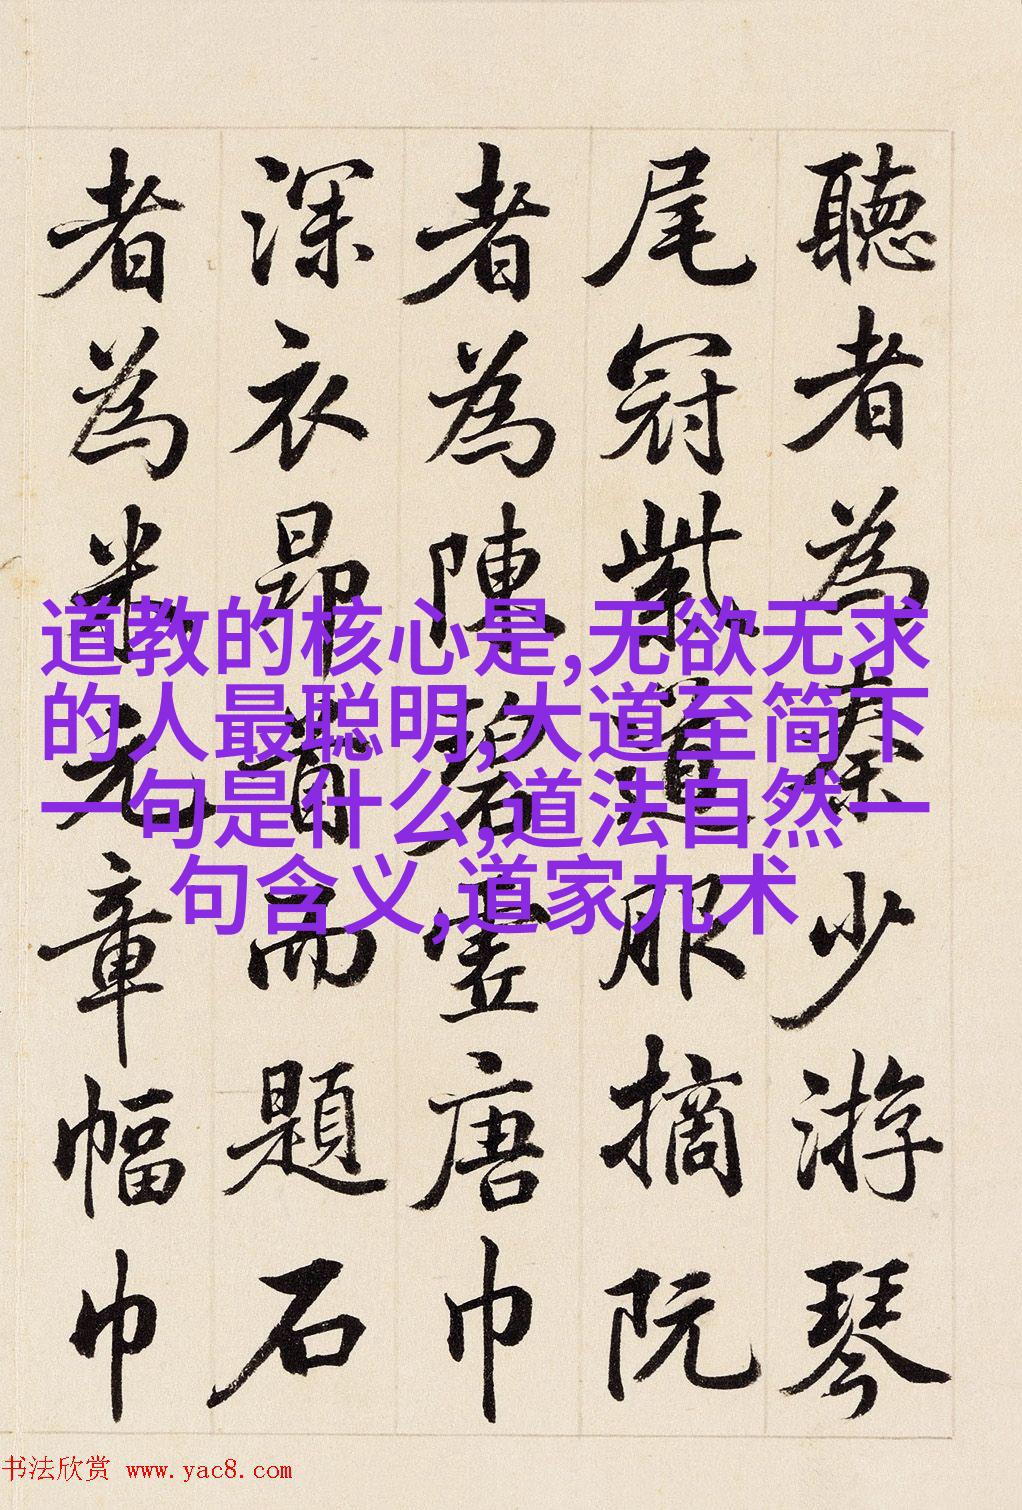 聽者為秦少游琴
尾冠紫道服摘阮
者為陳碧虛唐巾
深衣昂首而題石
者為米元章幅巾
道教的核心是,无欲无求
的人最聪明,大道至简下
一句是什么,道法自然一
句含义,道家九术
书法欣赏 www.yac8.com